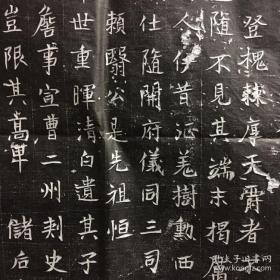 登槐棘厚天爵者
隨不見其端末揭
人伊昔征羌樹勳西
仕隨開府儀同三司
賴翳公是先祖恒
世重暉清白遺其子
詹事宣曹二州刺史
豈限其高卑 儲后